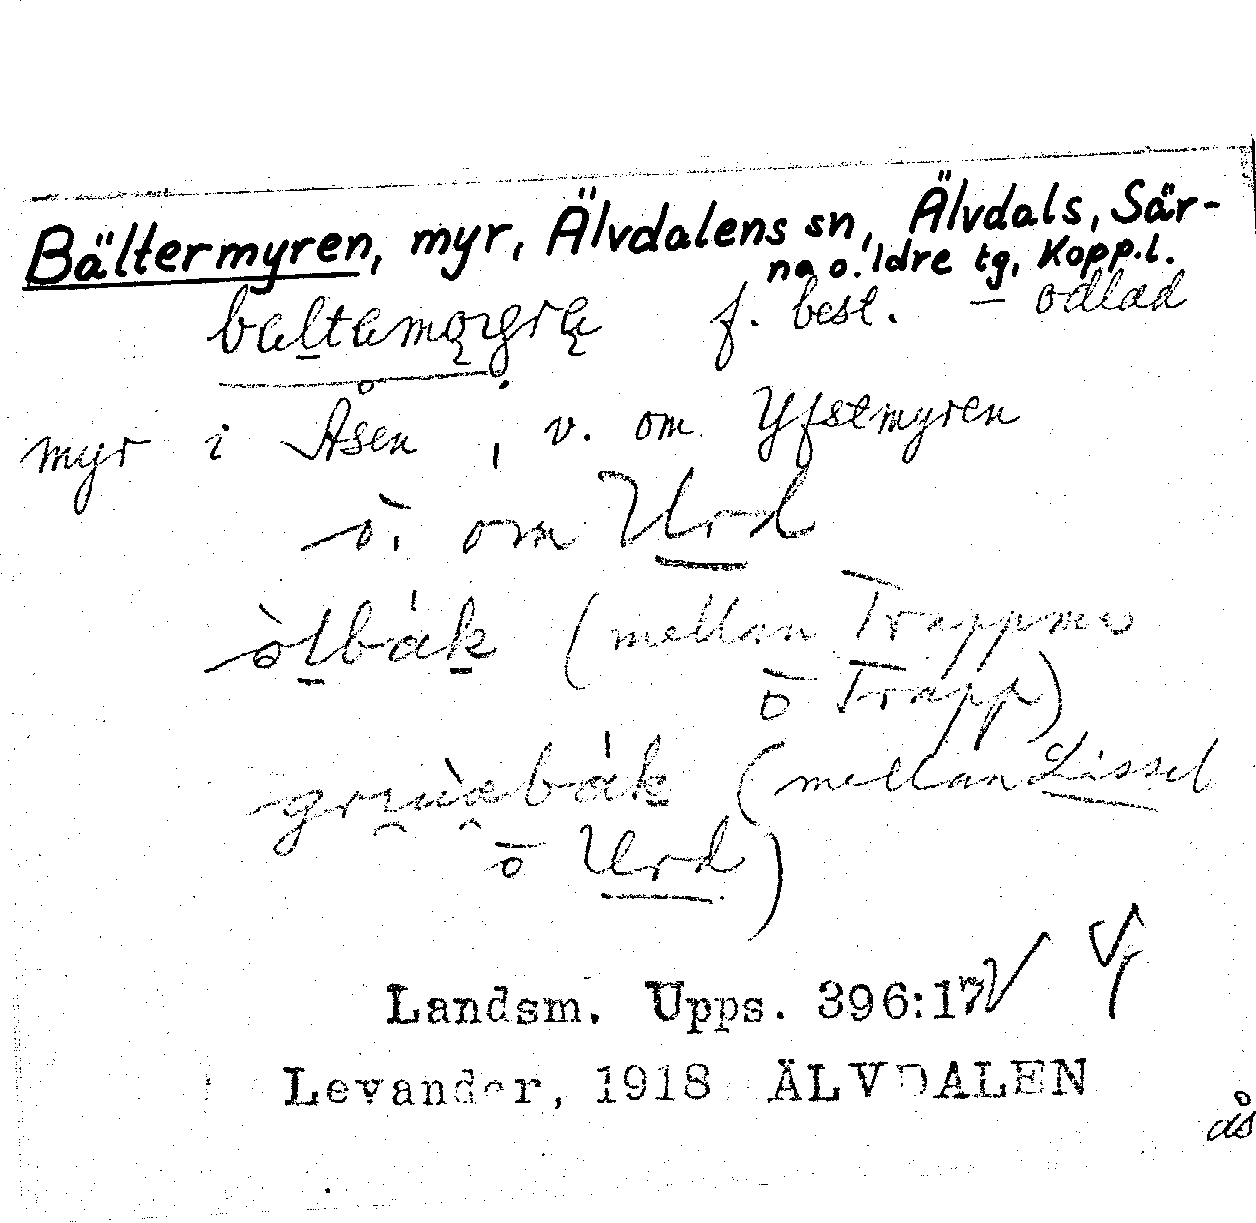 Bältermyren, myr, Älvdalens sn, Älvdals, Sär-
na o. Idre tg, Kopp.l.
f. best. – odlad
myr i Åsen, v. om Yfstmyren
ö. om Urd
(mellan
o Trapp)
(mellan Lissel
o Urd)
Landsm. Upps. 396:17
Levander, 1918 ÄLVDALEN
ås